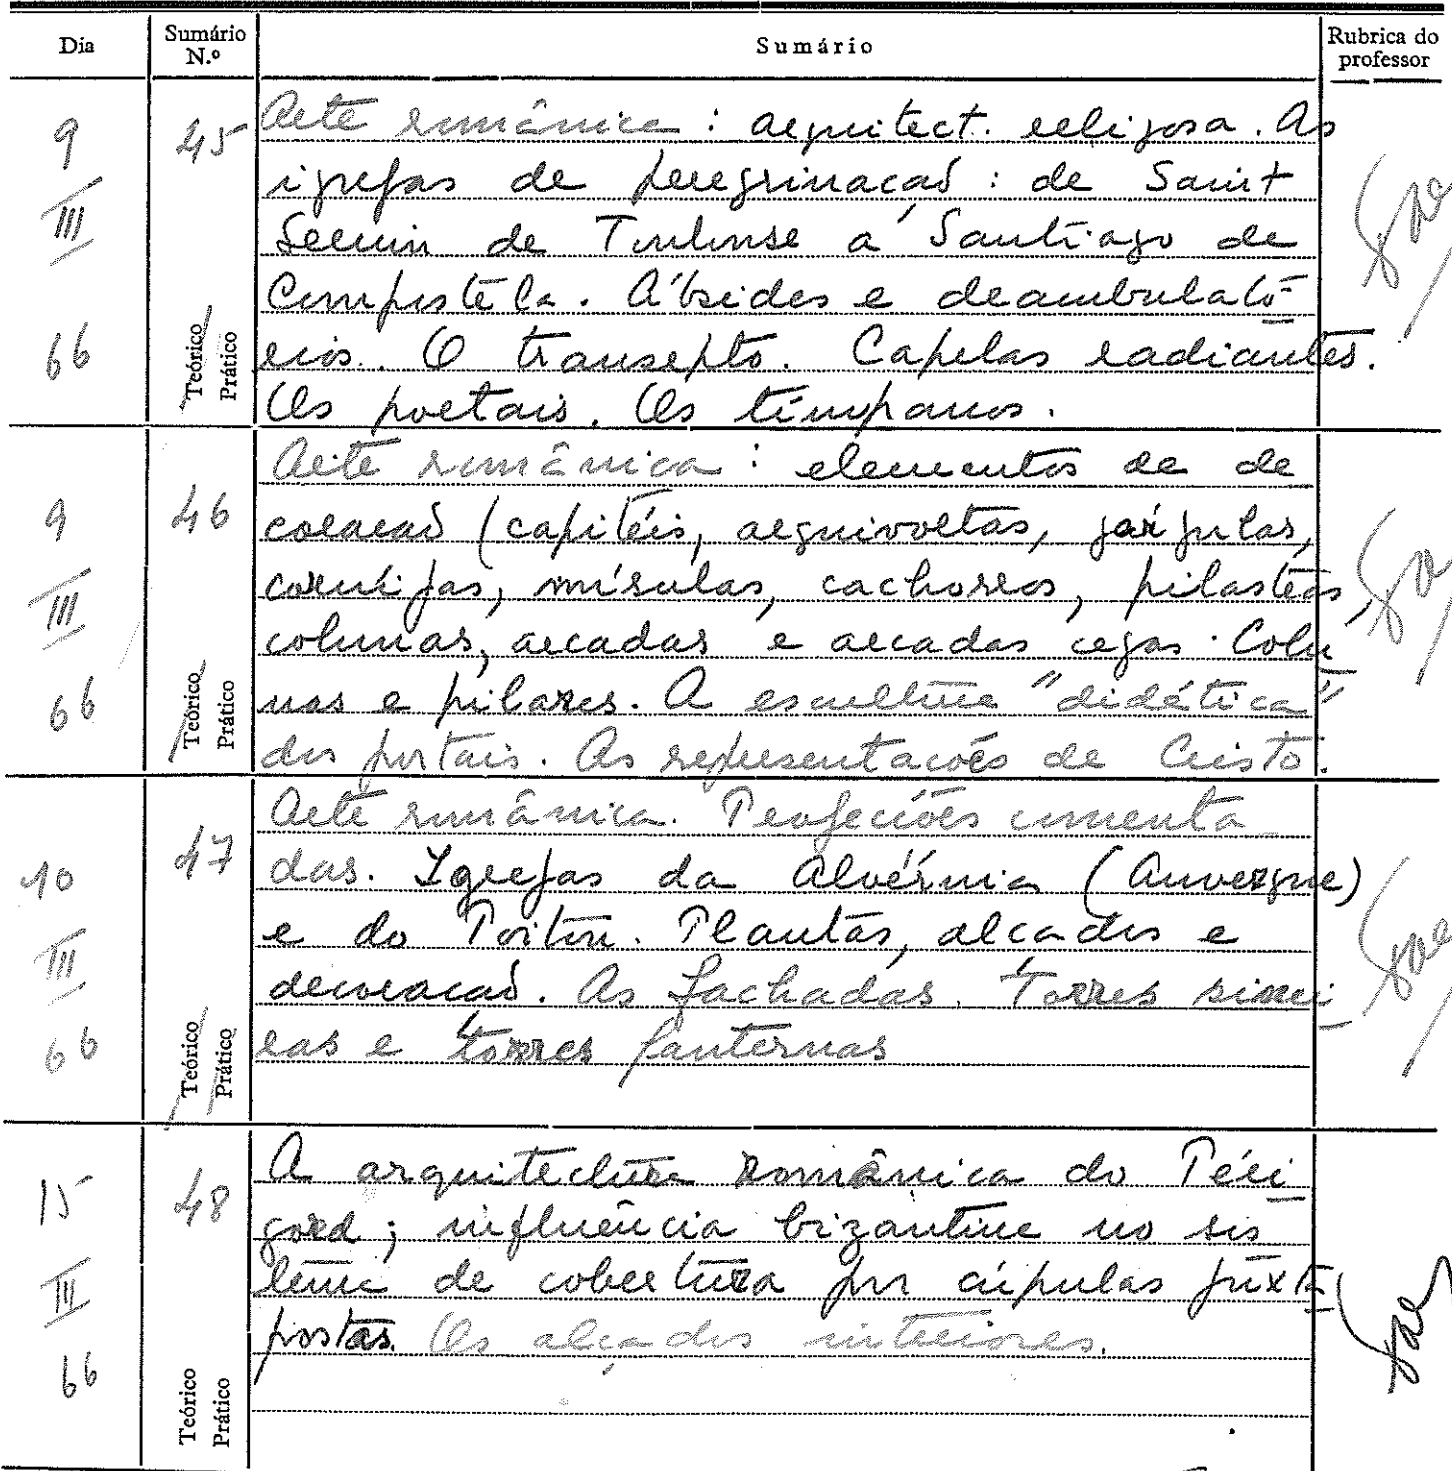 Dia Sumário N.º Sumário Rubrica do professor
9 III 66
45
Teórico
Prático
Arte românica: arquitect. religiosa. As
igrejas de peregrinação: de Saint
Sernin de Toulouse a Santiago de
Compostela. Ábsides e deambulató-
rios. O transepto. Capelas radiantes.
Os portais. Os tímpanos.
9 III 66
46
Teórico
Prático
Arte românica: elementos de de
coração (capitéis, arquivoltas, gárgulas,
cornijas, mísulas, cachorros, pilastras,
colunas, arcadas e arcadas cegas. Colu
nas e pilares. A escultura "didática"
dos portais. As representações de Cristo.
10 III 66
47
Teórico
Prático
Arte românica. Projecções comenta
das. Igrejas da Alvérnia (Auvergne)
e do Poitou. Plantas, alçados e
decoração. As fachadas. Torres sinei
ras e torres lanternas
15 III 66
48
Teórico
Prático
A arquitectura românica do Péri
gord; influência bizantina no sis
tema de cobertura por cúpulas juxta
postas. Os alçados interiores.